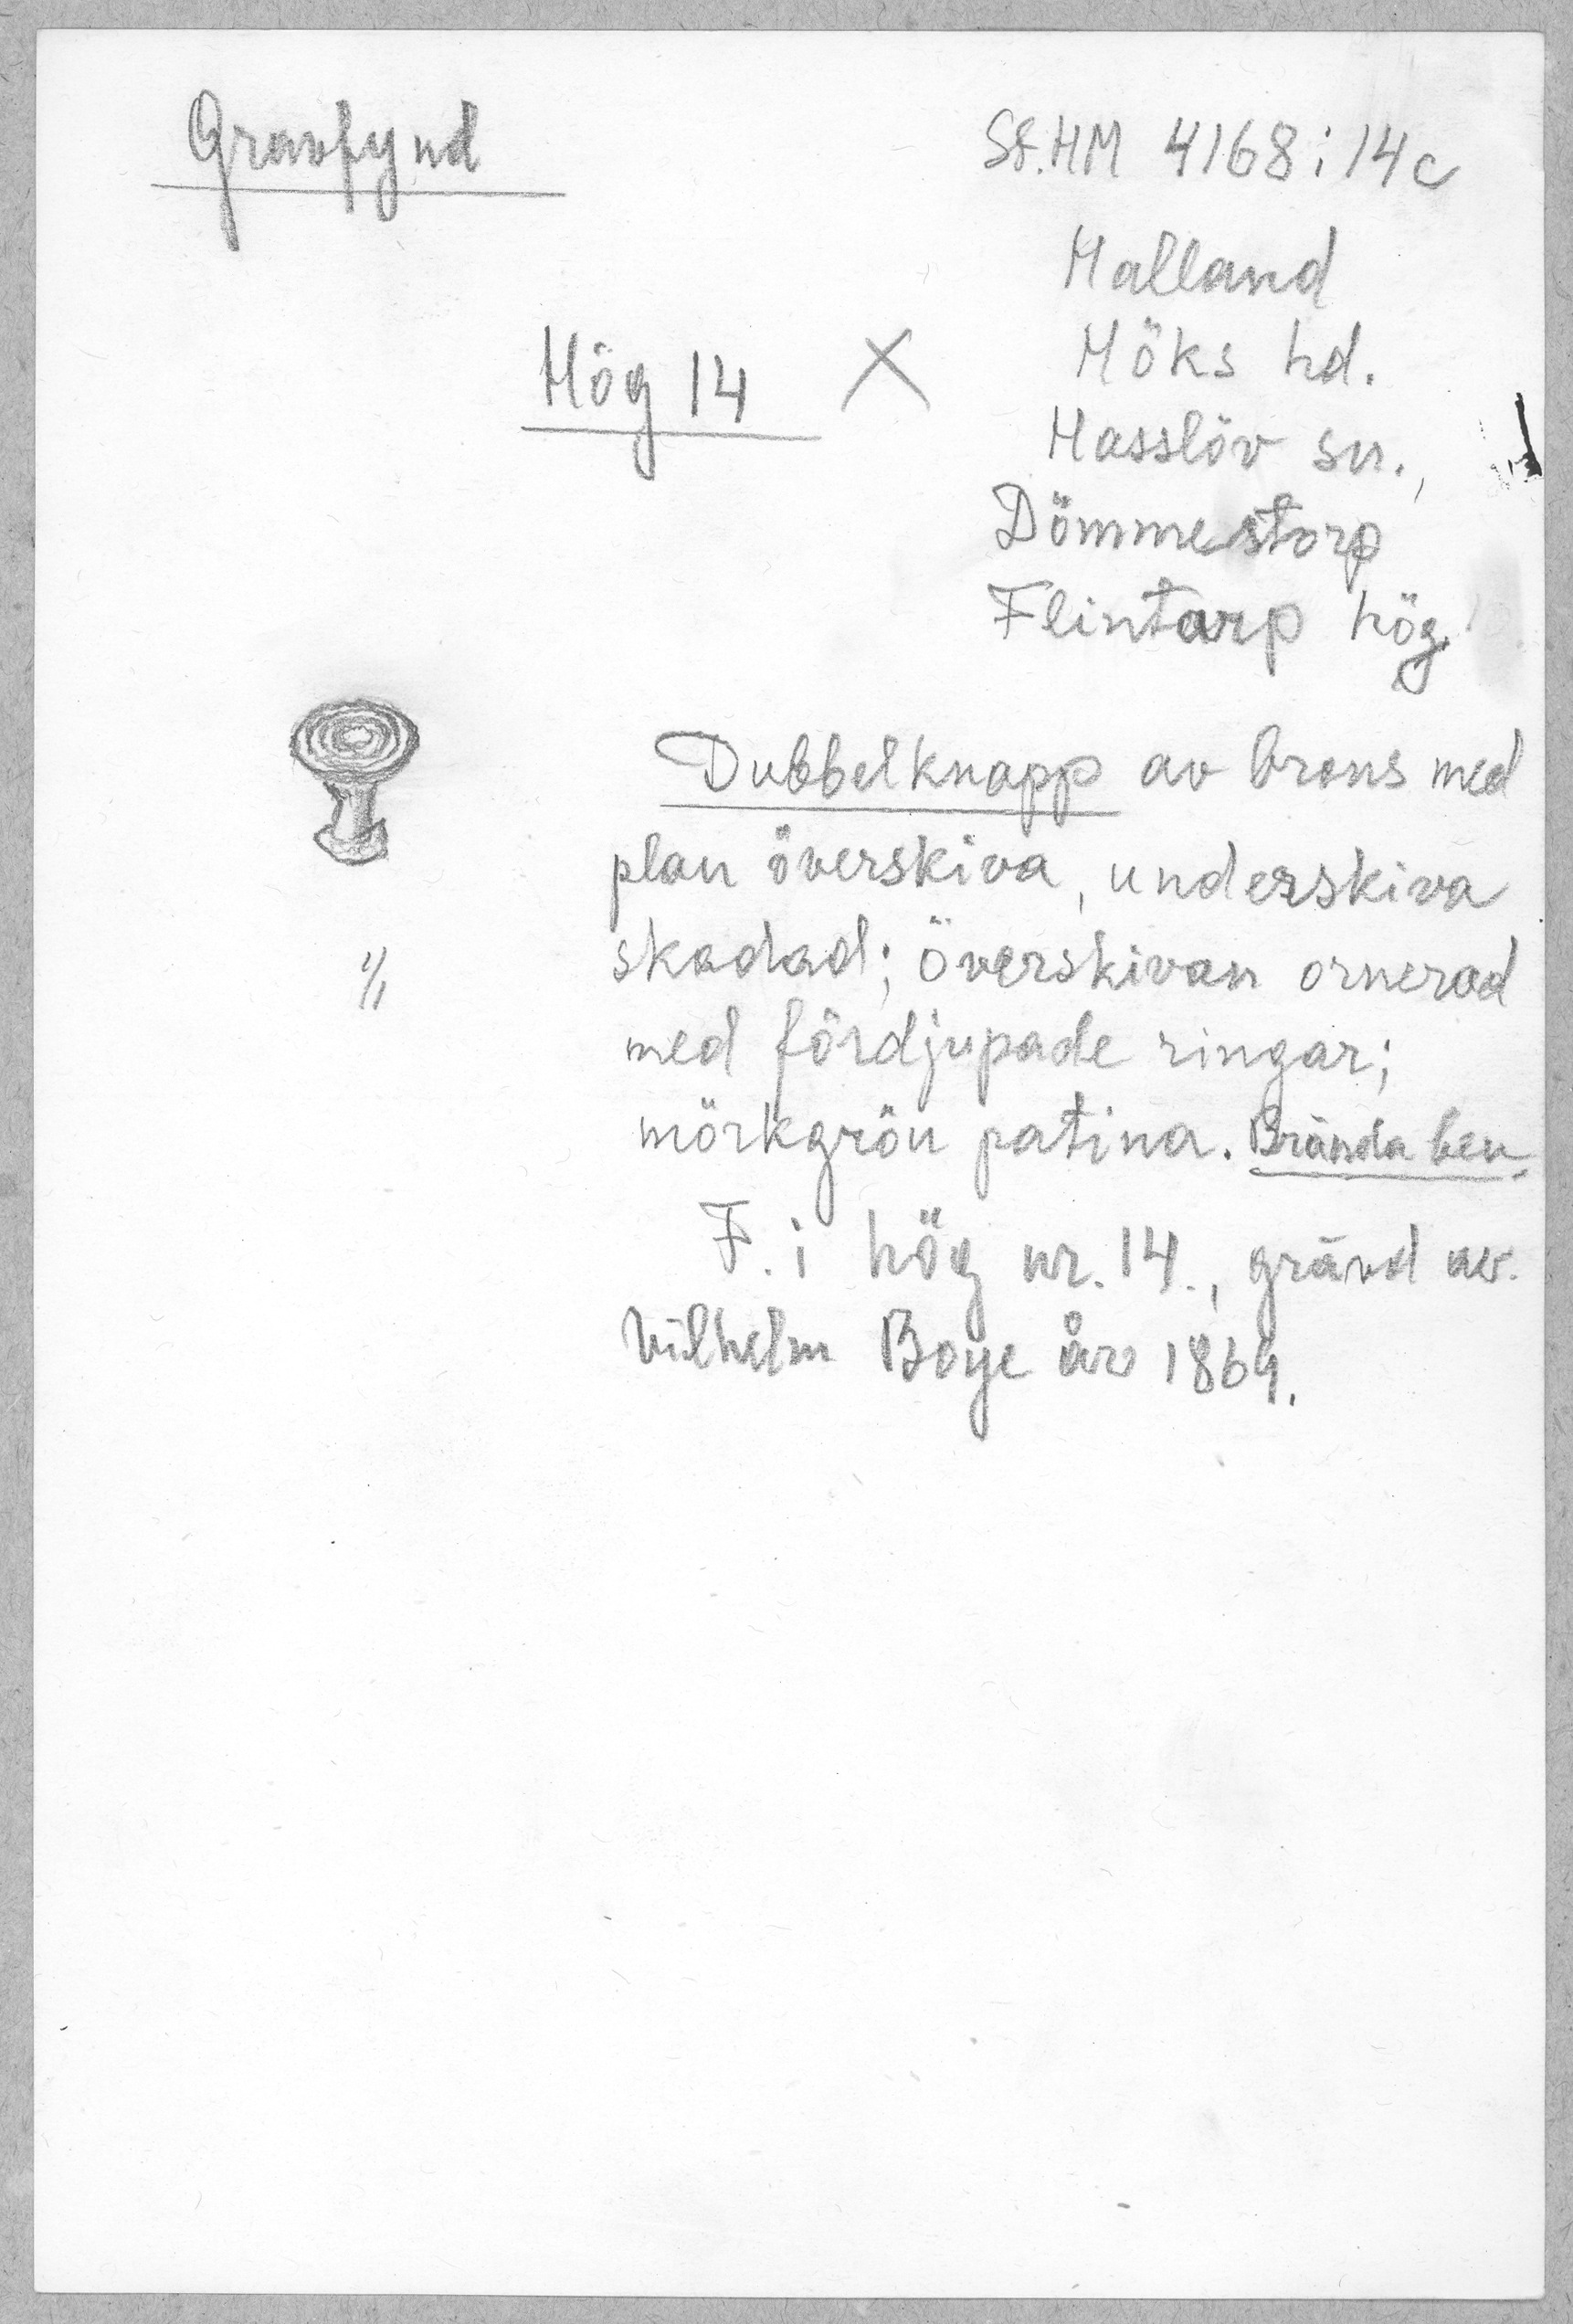 Gravfynd
St.HM 4168:14c
Halland
Hög 14 X
Höks hd.
Hasslöv sn.,
Dömmestorp
Flintarp hög.
Dubbelknapp av brons med
plan överskiva, underskiva
skadad; överskivan ornerad
1/1
med fördjupade ringar;
mörkgrön patina. Brända ben.
F. i hög nr. 14., grävd av
Vilhelm Boye år 1869.